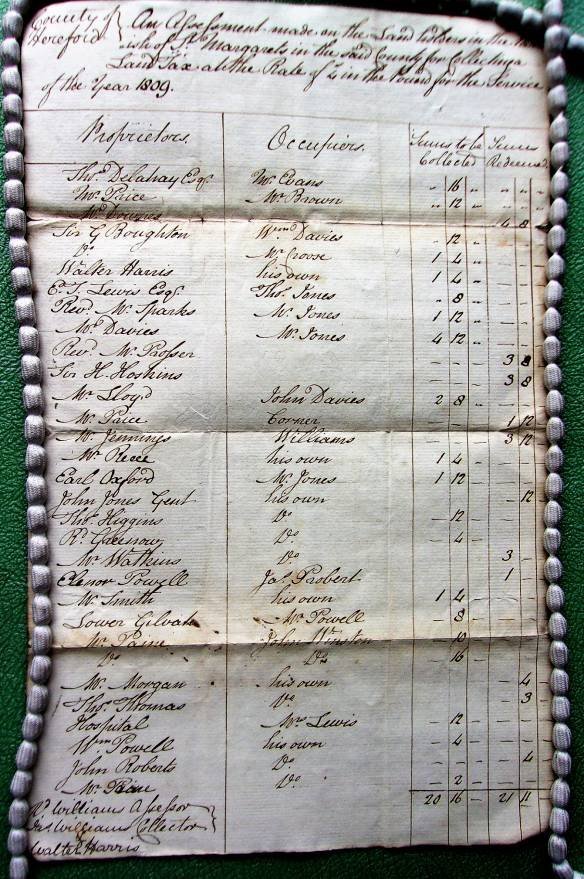 County of Hereford } An Assessment made on the Land holders in the
ish of St. Margarets in the said County for Collecting
Land Tax at the Rate of 4/ in the Pound for the Service
of the Year 1809.
Proprietors. Occupiers. Sums to be Collected Sums Redeemed
Thos. Delahay Esqr. Mr. Evans " 16 " " " "
Mr. Price Mr. Brown " 12 " " " "
4 8
Sir G Boughton Wm. Davies " 12 "
Do. Mr. Croose 1 4 "
Walter Harris his own 1 4 "
E. T. Lewis Esqr. Thos. Jones " 8 "
Revd. Mr. Sparks Mr. Jones 1 12 "
Mr. Davies Mr. Jones 4 12 "
Revd. Mr. Prosser 3 8
Sir H. Hoskins 3 8
Mr. Lloyd John Davies 2 8
Mr. Price Corner 1 12
Mr. Jennings Williams 3 12
Mr. Reece his own 1 4
Earl Oxford Mr. Jones 1 12
John Jones Gent his own 12
Thos. Higgins Do. 12
Rd. Greenow Do. 4
Mr. Watkins Do. 3
Elenor Powell Jas. Probert 1
Mr. Smith his own 1 4
Lower Gilvah Mr. Powell 8
Mr. Paine John Winston
Do. Do. 16
Mr. Morgan his own 4
Thos. Thomas Do. 3
Hospital Mrs Lewis 12
Wm. Powell his own 4
John Roberts Do. 4
Mr. Paine Do. 2
20 16 21 11
Williams Assessor
Jas. Williams Collector
Walter Harris